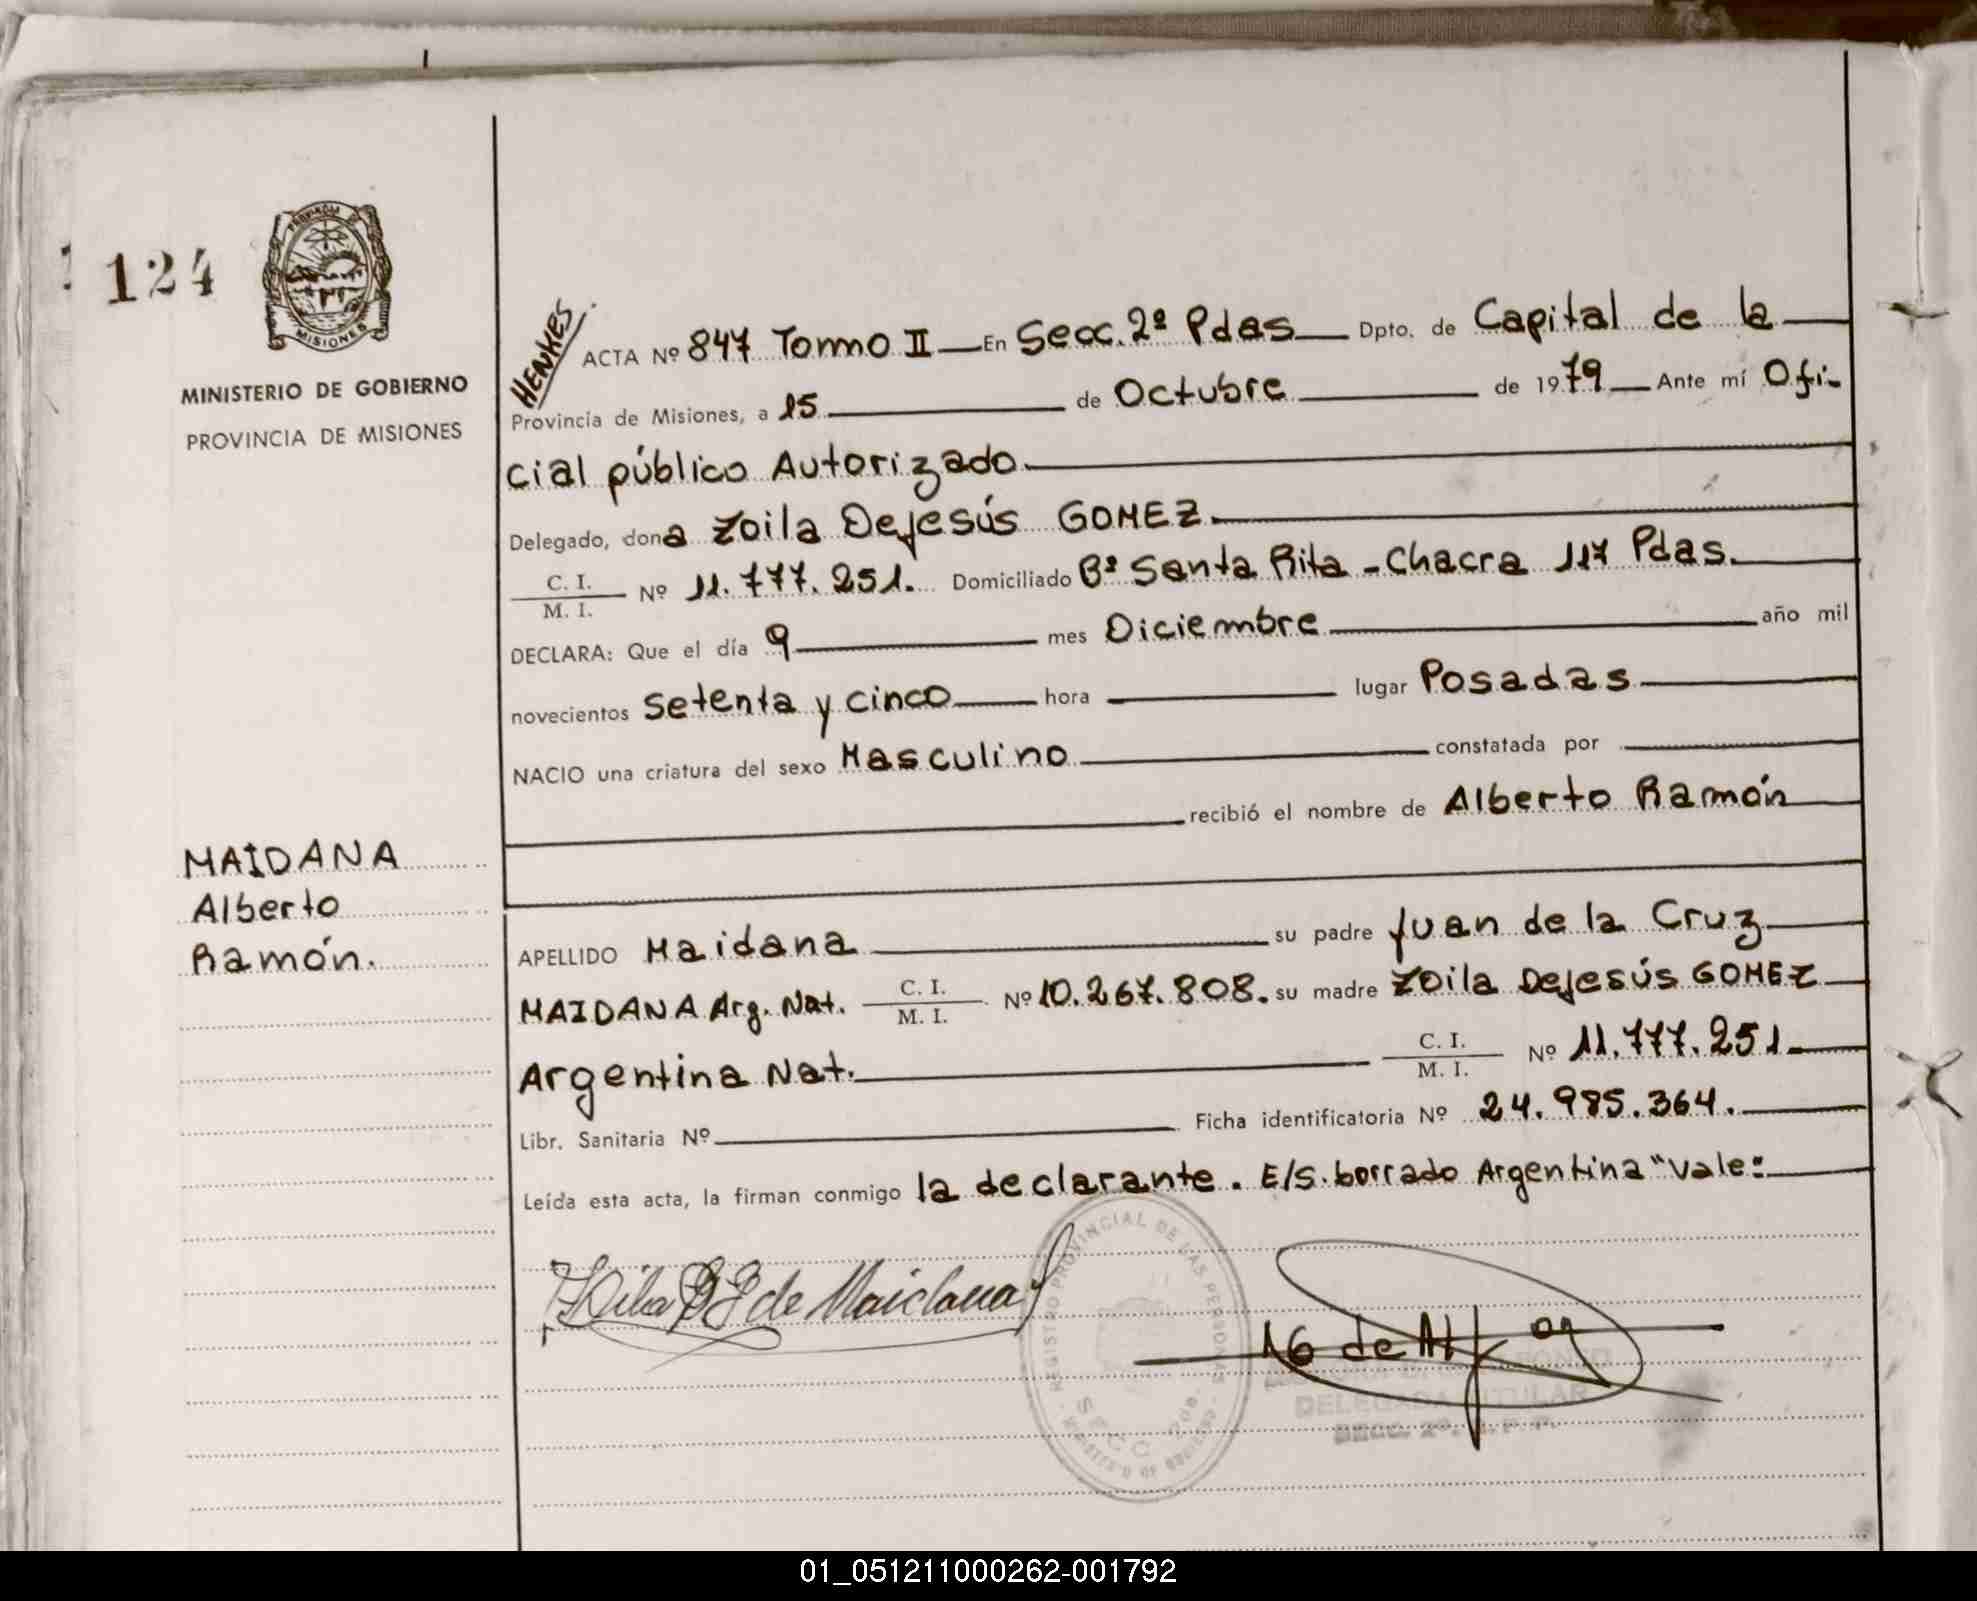 124
PROVINCIA DE
MISIONES
MINISTERIO DE GOBIERNO
PROVINCIA DE MISIONES
HENKES.
ACTA Nº 847 Tomo II En Secc. 2ª Pdas Dpto. de Capital de la
Provincia de Misiones, a 15 de Octubre de 1979 Ante mí Ofi-
cial público Autorizado
Delegado, dona Zoila Dejesús GOMEZ
C. I.
M. I. Nº 11.777.251. Domiciliado Bº Santa Rita - Chacra 117 Pdas.
DECLARA: Que el día 9 mes Diciembre año mil
novecientos setenta y cinco hora lugar Posadas
NACIO una criatura del sexo Masculino constatada por
recibió el nombre de Alberto Ramón
MAIDANA
Alberto
Ramón.
APELLIDO Maidana su padre Juan de la Cruz
MAIDANA Arg. Nat. C. I. M. I. Nº 10.267.808. su madre Zoila Dejesús GOMEZ
Argentina Nat. C. I. M. I. Nº 11.777.251
Libr. Sanitaria Nº Ficha identificatoria Nº 24.985.364.
Leída esta acta, la firman conmigo la declarante. E/S. borrado Argentina "Vale:
Zoila DJ G de Maidana
REGISTRO PROVINCIAL DE LAS PERSONAS
SECC 2da.
DELEGADA TITULAR
SECC. 2ª. R. P. P.
01_051211000262-001792